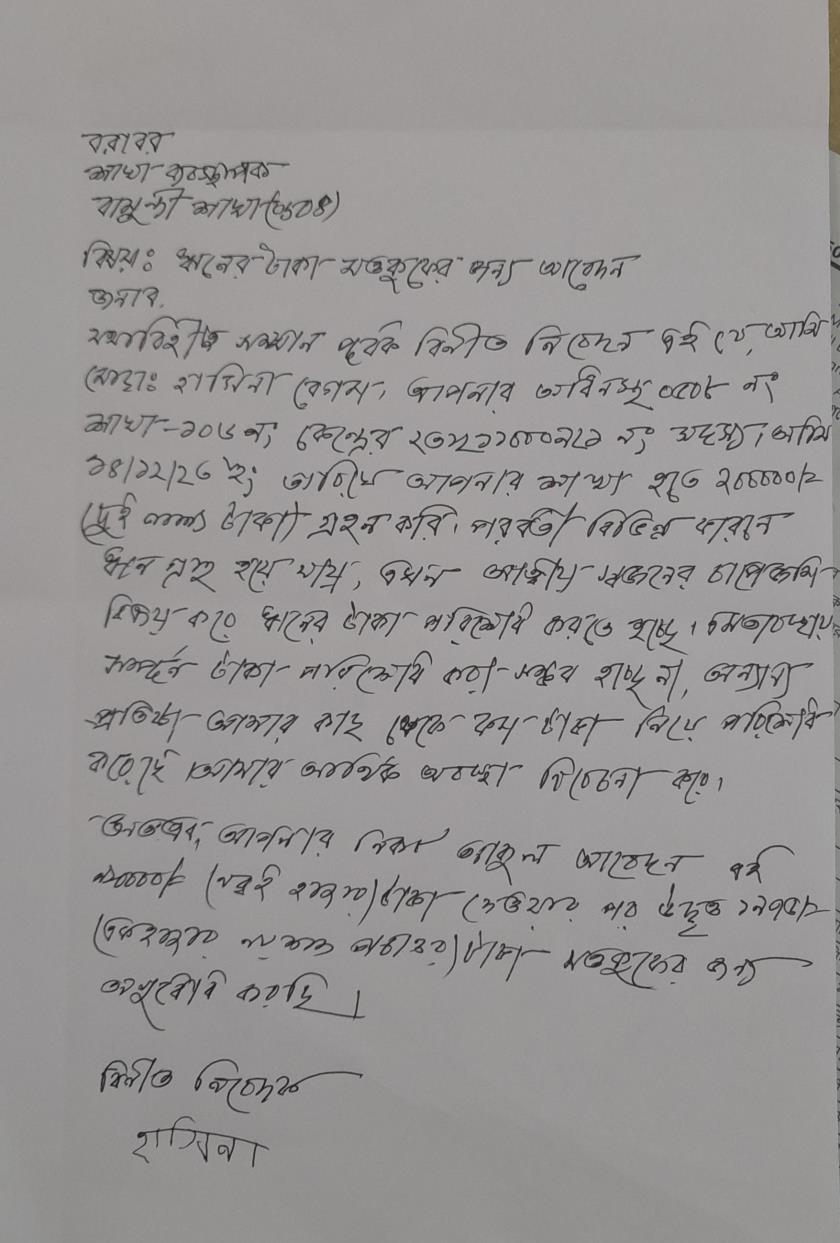 বরাবর
শাখা ব্যবস্থাপক
শাখা
বিষয়ঃ ঋনের টাকা মওকুফের জন্য আবেদন
জনাব,
যথাবিহীত সম্মান পূর্বক বিনীত নিবেদন এই যে, আমি
মোছাঃ হাসিনা বেগম, আপনার অধিনস্থ নং
শাখা-১০৬ নং কেন্দ্রের নং সদস্য। আমি
ইং তারিখে আপনার শাখা হতে ২০০০০০/=
(দুই লক্ষ্য টাকা) গ্রহন করি। পরবর্তী বিভিন্ন কারনে
ঋনে গ্রস্থ হয়ে যায়, তখন আত্মীয় স্বজনের চাপে জমি
বিক্রয় করে ঋনের টাকা পরিশোধ করতে হচ্ছে। এমতাবস্থায়
সম্পূর্ন টাকা পরিশোধ করা সম্ভব হচ্ছে না, অন্যান্য
প্রতিষ্ঠা আমার কাছ থেকে কম টাকা নিয়ে পরিশোধ
করেছে আমার আর্থিক অবস্থা বিবেচনা করে।
অতএব, আপনার নিকট আকুল আবেদন এই
৯০০০০/= (নব্বই হাজার) টাকা নেওয়ার পর উদ্বৃত্ত ১৯৭৫/=
(এক হাজার নয় শত পচাত্তর) টাকা মওকুফের জন্য
অনুরোধ করছি।
বিনীত নিবেদক
হাসিনা